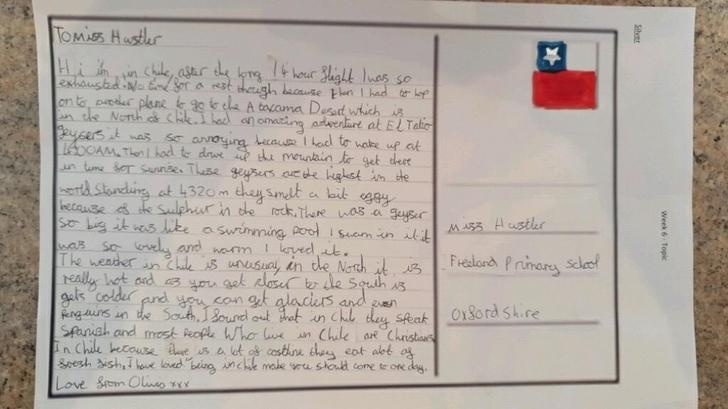 To Miss Hustler
Hi im in Chile, after the long 14 hour flight I was so
exhausted. No time for a rest though because then I had to hop
on to another plane to go to the Atacama Desert which is
in the North of Chile. I had an amazing adventure at El Tatio
geysers it was so annoying because I had to wake up at
4:00AM. Then I had to drive up the mountain to get there
in time for sunrise. These geysers are the highest in the
world standing at 4320m they smelt a bit eggy
because of the Sulphur in the rock. There was a geyser
so big it was like a swimming pool I swam in it it
was so lovely and warm I loved it.
The weather in Chile is unusual, in the North it is
really hot and as you get closer to the South is
gets colder and you can get glaciers and even
Penguins in the South. I found out that in Chile they speak
Spanish and most People Who live in Chile are Christians
In Chile because there is a lot of costline they eat alot of
fish. I have loved being in Chile you should come to one day.
Love from xxx
Miss Hustler
Freeland Primary School
Oxfordshire
Silver
Week 6 - Topic